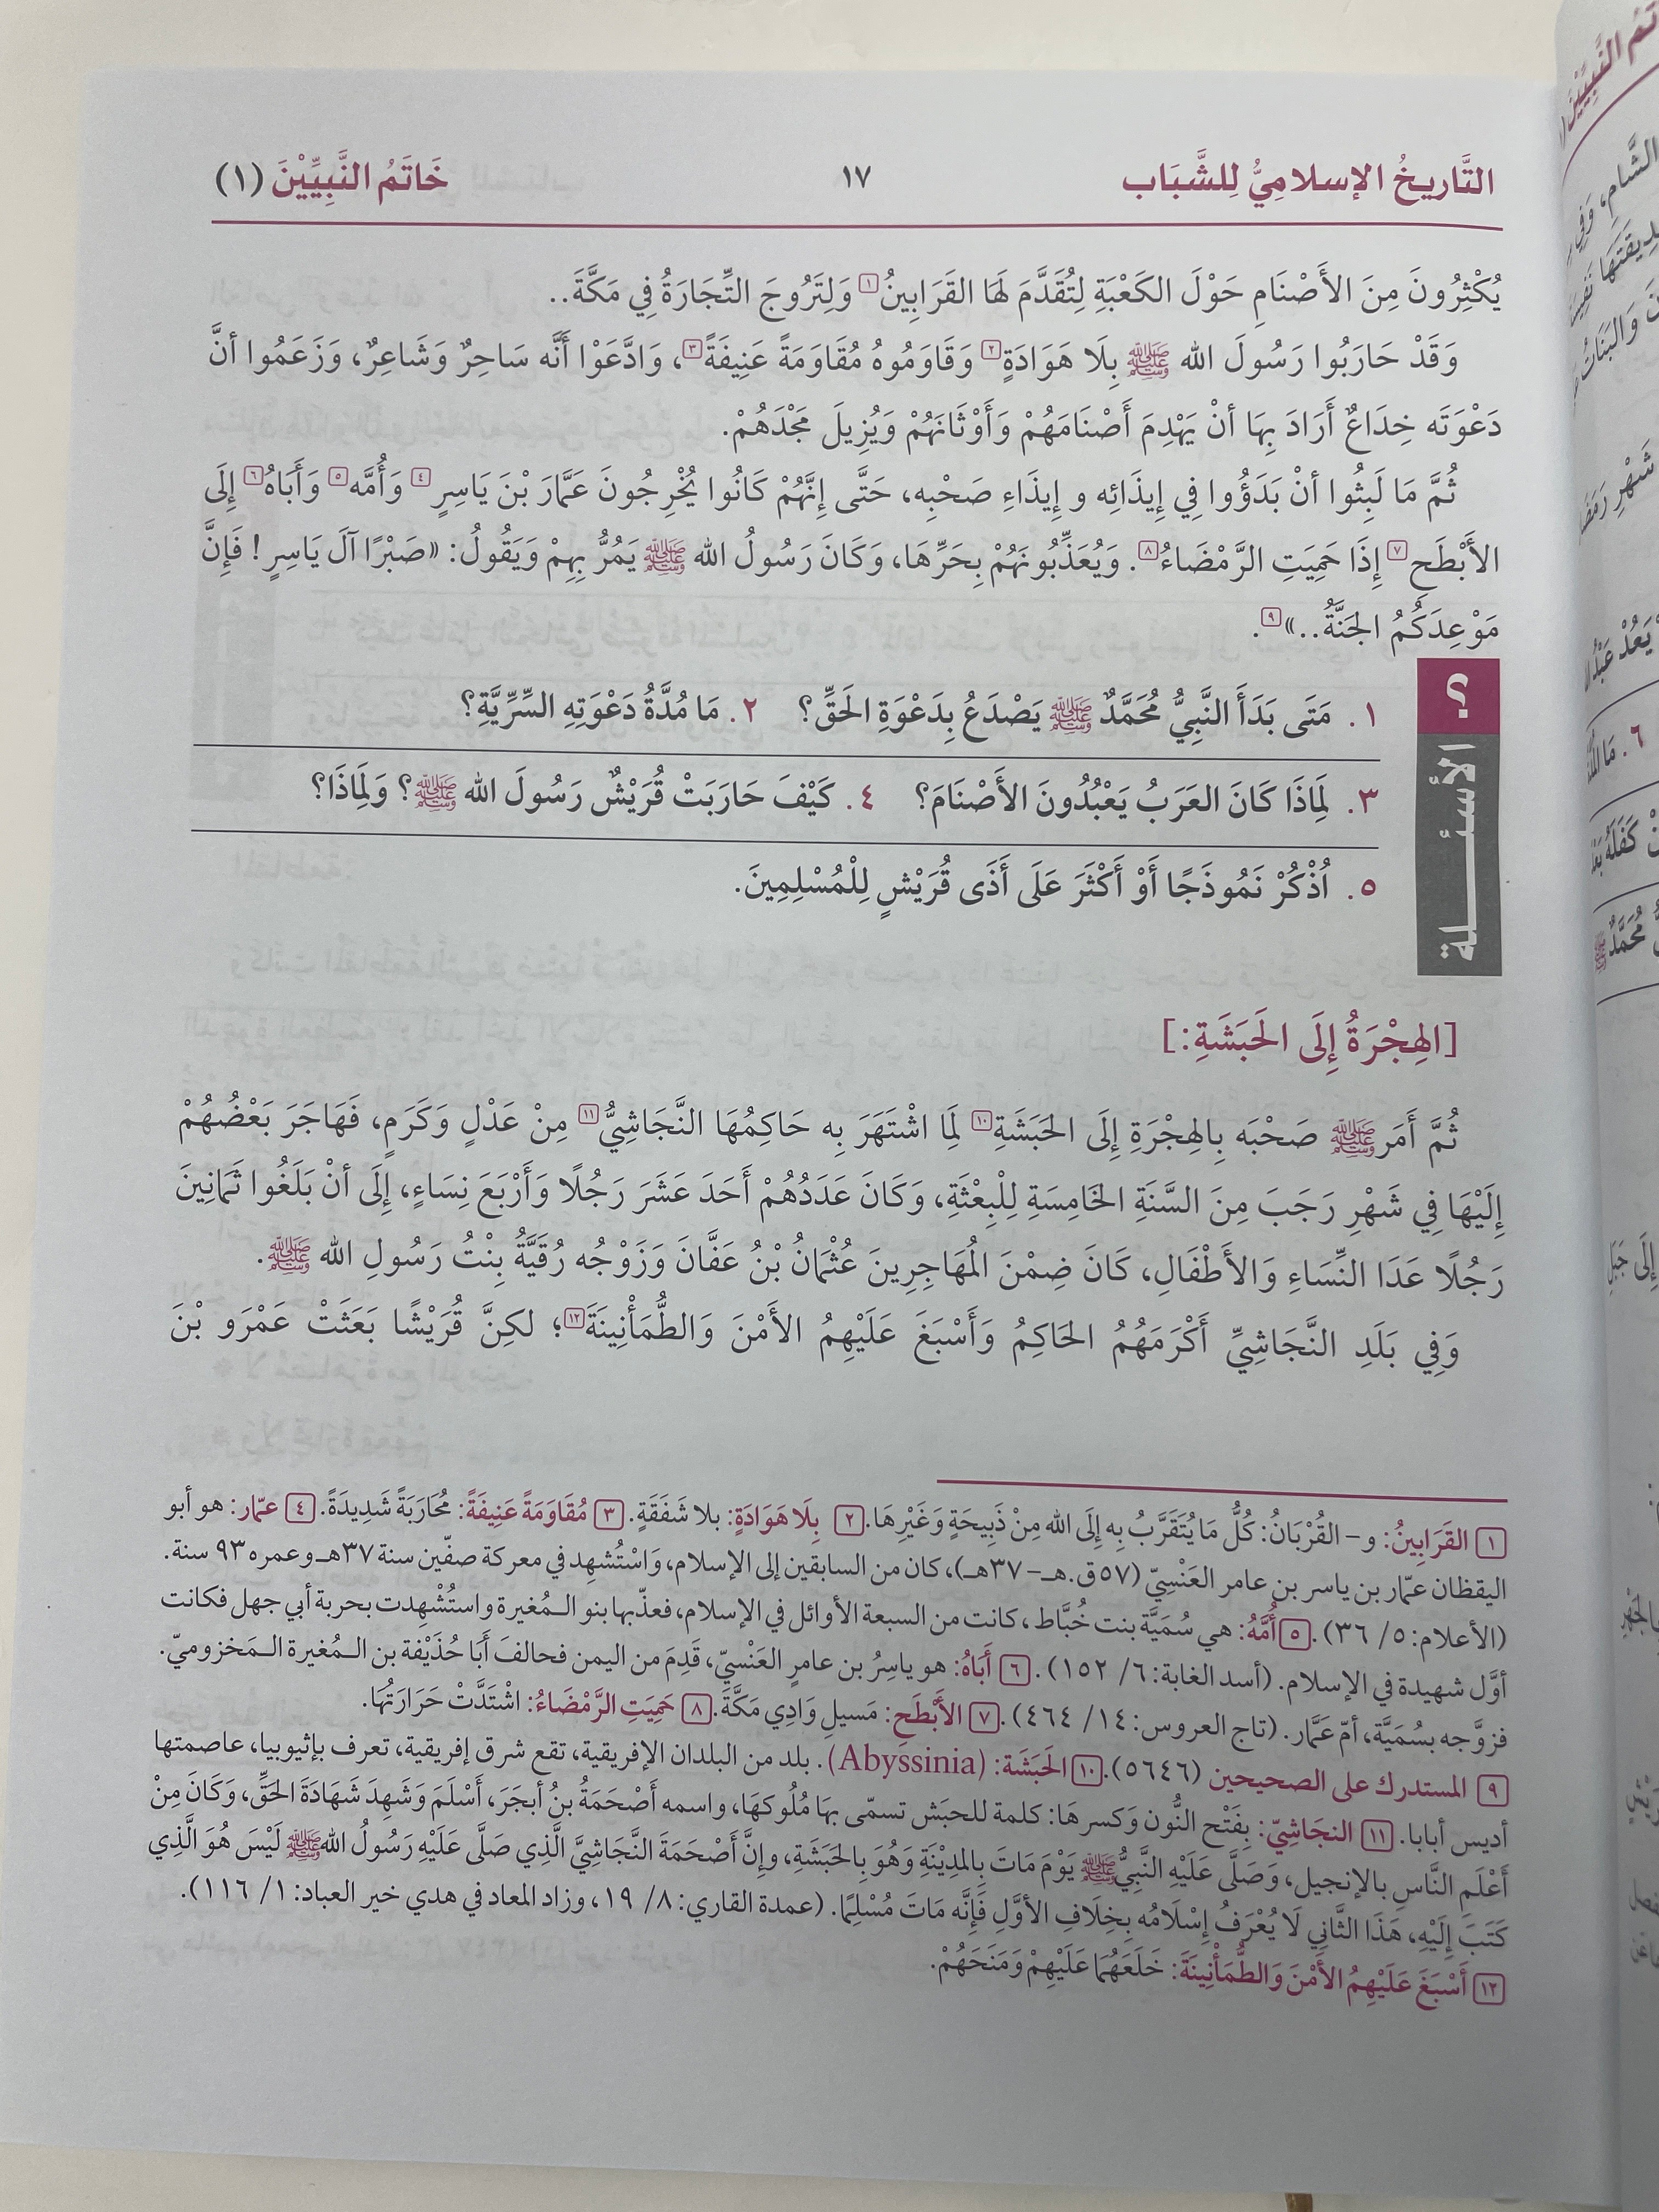 التَّاريخُ الإسلامِيُّ لِلشَّبَاب ١٧ خَاتَمُ النَّبِيِّيْنَ (١)
يُكْثِرُونَ مِنَ الأَصْنَامِ حَوْلَ الكَعْبَةِ لِتُقَدَّمَ لَهَا القَرَابِينُ[١] وَلِتَرُوجَ التِّجَارَةُ فِي مَكَّةَ..
وَقَدْ حَارَبُوا رَسُولَ الله ﷺ بِلَا هَوَادَةٍ[٢] وَقَاوَمُوهُ مُقَاوَمَةً عَنِيفَةً[٣]، وَادَّعَوْا أَنَّه سَاحِرٌ وَشَاعِرٌ، وَزَعَمُوا أنَّ
دَعْوَتَه خِدَاعٌ أَرَادَ بِهَا أنْ يَهْدِمَ أَصْنَامَهُمْ وَأَوْثَانَهُمْ وَيُزِيلَ مَجْدَهُمْ.
ثُمَّ مَا لَبِثُوا أنْ بَدَؤُوا فِي إِيذَائِه و إِيذَاءِ صَحْبِه، حَتَّى إِنَّهُمْ كَانُوا يُخْرِجُونَ عَمَّارَ بْنَ يَاسِرٍ[٤] وَأُمَّه[٥] وَأَبَاهُ[٦] إِلَى
الأَبْطَحِ[٧] إِذَا حَمِيَتِ الرَّمْضَاءُ[٨]. وَيُعَذِّبُونَهُمْ بِحَرِّهَا، وَكَانَ رَسُولُ الله ﷺ يَمُرُّ بِهِمْ وَيَقُولُ: «صَبْرًا آلَ يَاسِرٍ! فَإِنَّ
مَوْعِدَكُمُ الجَنَّةُ..»[٩].
؟ الأسئـــلة
١. مَتَى بَدَأَ النَّبِيُّ مُحَمَّدٌ ﷺ يَصْدَعُ بِدَعْوَةِ الحَقِّ؟ ٢. مَا مُدَّةُ دَعْوَتِهِ السِّرِّيَّةِ؟
٣. لِمَاذَا كَانَ العَرَبُ يَعْبُدُونَ الأَصْنَامَ؟ ٤. كَيْفَ حَارَبَتْ قُرَيْشٌ رَسُولَ الله ﷺ؟ وَلِمَاذَا؟
٥. اُذْكُرْ نَمُوذَجًا أَوْ أَكْثَرَ عَلَى أَذَى قُرَيْشٍ لِلْمُسْلِمِينَ.
[الهِجْرَةُ إِلَى الحَبَشَةِ:]
ثُمَّ أَمَر ﷺ صَحْبَه بِالهِجْرَةِ إِلَى الحَبَشَةِ[١٠] لِمَا اشْتَهَرَ بِه حَاكِمُهَا النَّجَاشِيُّ[١١] مِنْ عَدْلٍ وَكَرَمٍ، فَهَاجَرَ بَعْضُهُمْ
إِلَيْهَا فِي شَهْرِ رَجَبَ مِنَ السَّنَةِ الخَامِسَةِ لِلْبِعْثَةِ، وَكَانَ عَدَدُهُمْ أَحَدَ عَشَرَ رَجُلًا وَأَرْبَعَ نِسَاءٍ، إِلَى أنْ بَلَغُوا ثَمَانِينَ
رَجُلًا عَدَا النِّسَاءِ وَالأَطْفَالِ، كَانَ ضِمْنَ المُهَاجِرِينَ عُثْمَانُ بْنُ عَفَّانَ وَزَوْجُه رُقَيَّةُ بِنْتُ رَسُولِ الله ﷺ.
وَفِي بَلَدِ النَّجَاشِيِّ أَكْرَمَهُمُ الحَاكِمُ وَأَسْبَغَ عَلَيْهِمُ الأَمْنَ وَالطُّمَأْنِينَةَ[١٢]؛ لكِنَّ قُرَيْشًا بَعَثَتْ عَمْرَو بْنَ
[١] القَرَابِينُ: و- القُرْبَانُ: كُلُّ مَا يُتَقَرَّبُ بِه إِلَى الله مِنْ ذَبِيحَةٍ وَغَيْرِهَا. [٢] بِلَا هَوَادَةٍ: بلا شَفَقَةٍ. [٣] مُقَاوَمَةً عَنِيفَةً: مُحَارَبَةً شَدِيدَةً. [٤] عمّار: هو أبو
اليقظان عمّار بن ياسر بن عامر العَنْسِيّ (٥٧ق.هـ- ٣٧هـ)، كان من السابقين إلى الإسلام، وَاسْتُشهِد في معركة صفّين سنة ٣٧هـ وعمره ٩٣ سنة.
(الأعلام: ٥/ ٣٦). [٥] أُمَّهُ: هي سُمَيَّة بنت خُبَّاط، كانت من السبعة الأوائل في الإسلام، فعذّبها بنو المُغيرة واستُشْهِدت بحربة أبي جهل فكانت
أوَّل شهيدة في الإسلام. (أسد الغابة: ٦/ ١٥٢). [٦] أَبَاهُ: هو ياسِرُ بن عامرٍ العَنْسيّ، قَدِمَ من اليمن فحالفَ أَبَا حُذَيْفة بن المُغيرة المَخزوميّ.
فزوَّجه بسُمَيَّة، أمّ عَمَّار. (تاج العروس: ١٤/ ٤٦٤). [٧] الأَبْطَحِ: مَسيلِ وَادِي مَكَّةَ. [٨] حَمِيَتِ الرَّمْضَاءُ: اشْتَدَّتْ حَرَارَتُهَا.
[٩] المستدرك على الصحيحين (٥٦٤٦). [١٠] الحَبَشَة: (Abyssinia). بلد من البلدان الإفريقية، تقع شرق إفريقية، تعرف بإثيوبيا، عاصمتها
أديس أبابا. [١١] النجَاشِيّ: بِفَتْح النُّون وَكسرهَا: كلمة للحبَش تسمّى بهَا مُلُوكهَا، واسمه أَصْحَمَةُ بنُ أبجَرَ، أَسْلَمَ وَشَهِدَ شَهَادَةَ الحَقِّ، وَكَانَ مِنْ
أَعْلَمِ النَّاسِ بالإنجيل، وَصَلَّى عَلَيْهِ النَّبِيُّ ﷺ يَوْمَ مَاتَ بِالمدِيْنَةِ وَهُوَ بِالحَبَشَةِ، وإنَّ أَصْحَمَةَ النَّجَاشِيَّ الَّذِي صَلَّى عَلَيْهِ رَسُولُ الله ﷺ لَيْسَ هُوَ الَّذِي
كَتَبَ إِلَيْهِ، هَذَا الثَّانِي لَا يُعْرَفُ إِسْلَامُه بِخِلَافِ الأوَّلِ فَإِنَّه مَاتَ مُسْلِمًا. (عمدة القاري: ٨/ ١٩، وزاد المعاد في هدي خير العباد: ١/ ١١٦).
[١٢] أَسْبَغَ عَلَيْهِمُ الأَمْنَ وَالطُّمَأْنِينَةَ: خَلَعَهُمَا عَلَيْهِمْ وَمَنَحَهُمْ.